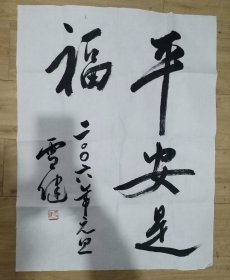 平安是
福
二〇〇六年元旦
雪健